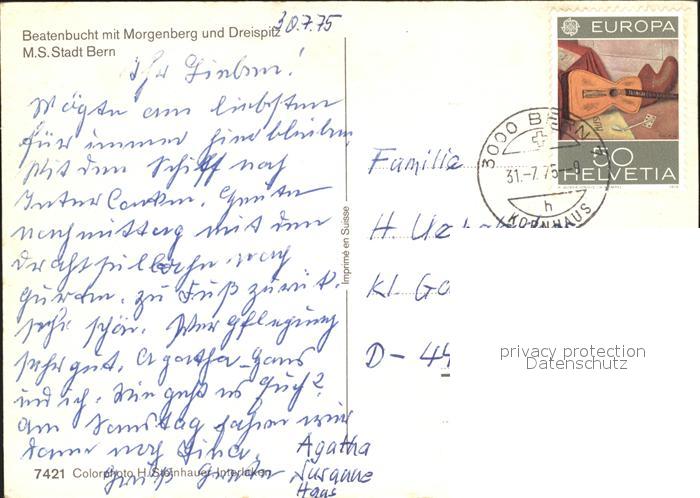 Beatenbucht mit Morgenberg und Dreispitz
M.S. Stadt Bern
30.7.75
Ihr Lieben!
Mögte am liebsten
für immer hier bleiben.
Mit dem Schiff nach
Interlaken. Heute
nachmittag mit den
drahtseilbahn nach
zu Fuß zurück.
sehr schön. Verpflegung
sehr gut. Agatha - Hans
und ich. Wie geht es Euch?
Am Samstag fahren wir
dann nach
Agatha
Susanne
Hans
7421 Colorphoto H. Steinhauer, Interlaken
Imprimé en Suisse
EUROPA
50
HELVETIA
3000 BERN
31.-7.75-9
h
KORNHAUS
Familie
H.
Kl.
D-
privacy protection
Datenschutz